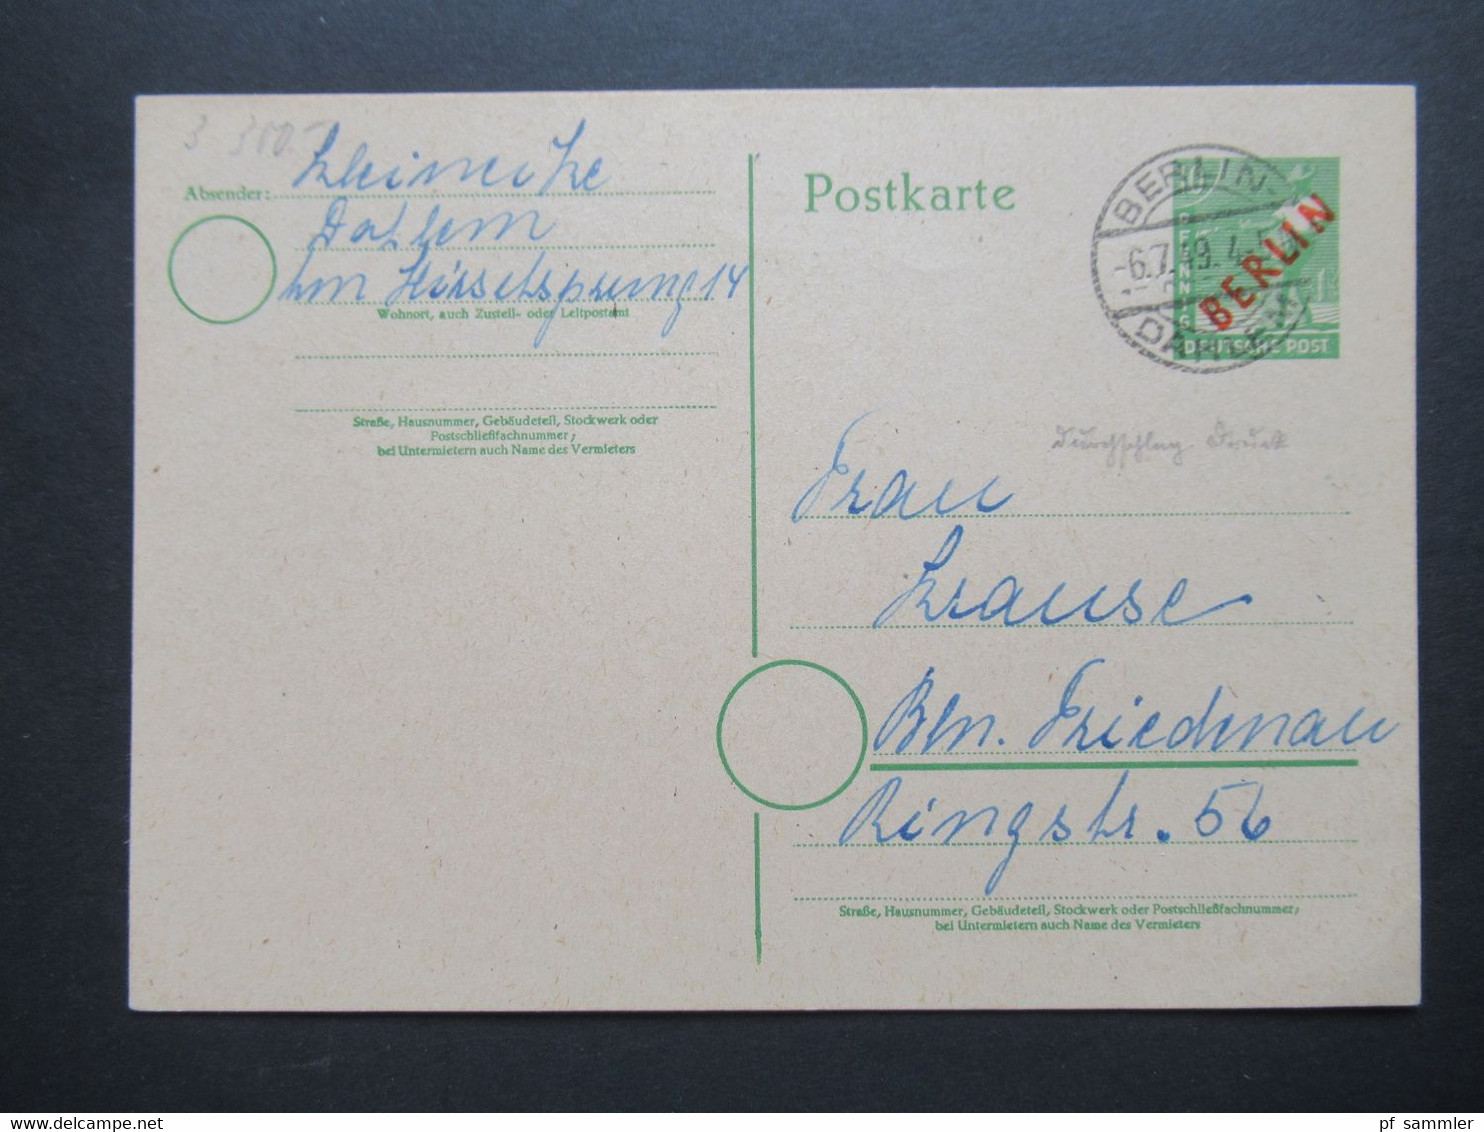 3 300.-
Absender: Kleinecke
Dahlem
Am Hirschsprung 14
Wohnort, auch Zustell- oder Leitpostamt
Straße, Hausnummer, Gebäudeteil, Stockwerk oder
Postschließfachnummer;
bei Untermietern auch Name des Vermieters
Postkarte
BERLIN
-6.7.49. 4-
DAHLEM
10
PFENNIG
BERLIN
DEUTSCHE POST
Durchschlag Druck
Frau
Krause
Bln. Friedenau
Ringstr. 56
Straße, Hausnummer, Gebäudeteil, Stockwerk oder Postschließfachnummer;
bei Untermietern auch Name des Vermieters
delcampe.net
pf_sammler